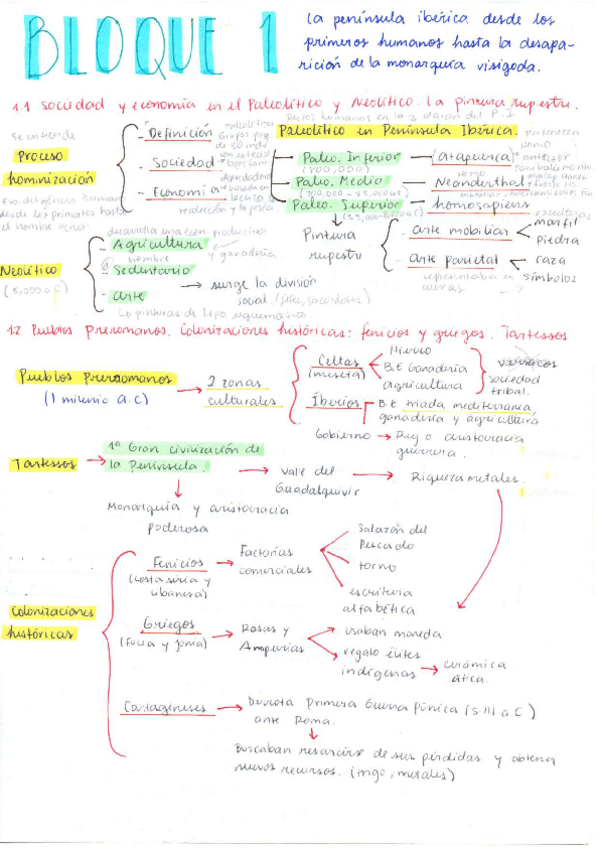 BLOQUE 1
La península ibérica desde los
primeros humanos hasta la desapa-
rición de la monarquía visigoda.
1.1 Sociedad y economía en el Paleolítico y Neolítico. La pintura rupestre.
Se entiende
Proceso
hominización
Evo. del género humano
desde los primates hasta
el hombre actual
- Definición
- Sociedad
- Economía
recolección y la pesca
Restos humanos en la
Paleolítico en Península Ibérica.
Paleo. Inferior
(800,000)
(Atapuerca)
homo
antecesor
Paleo. Medio
Neanderthal
Paleo. Superior
homosapiens
Pintura
rupestre
- arte mobiliar
esculturas
marfil
piedra
- arte parietal
representaba a
caza
símbolos
Neolítico
(5,000 a C)
desarrolla una econ productora
- Agricultura
y ganadería
hombre
- Sedentario
- arte
Lo pinturas de tipo esquemático
surge la división
social. (jefes, sacerdotes)
1.2 Pueblos prerromanos. Colonizaciones históricas: fenicios y griegos. Tartessos
Pueblos prerromanos
(1 milenio a.C)
2 zonas
culturales
Celtas
(meseta)
Hierro
B.E Ganadería
agricultura
sociedad
tribal.
Íberos
B.E triada mediterránea,
ganadería y agricultura
Gobierno → Rey o aristocracia
guerrera.
Tartessos
1ª Gran civilización de
la Península.
valle del
Guadalquivir
Riqueza metales.
Monarquía y aristocracia
poderosa
Colonizaciones
históricas
Fenicios
(costa siria y
libanesa)
Factorías
comerciales
Salazón del
Pescado
torno
escritura
alfabética
Griegos
(Focia y Jonia)
Rosas y
Ampurias
usaban moneda
regalo élites
indígenas
cerámica
ática.
Cartagineses
Derrota Primera Guerra Púnica (s III a C)
ante Roma.
Buscaban resarcirse de sus pérdidas y obtener
nuevos recursos. (trigo, metales)